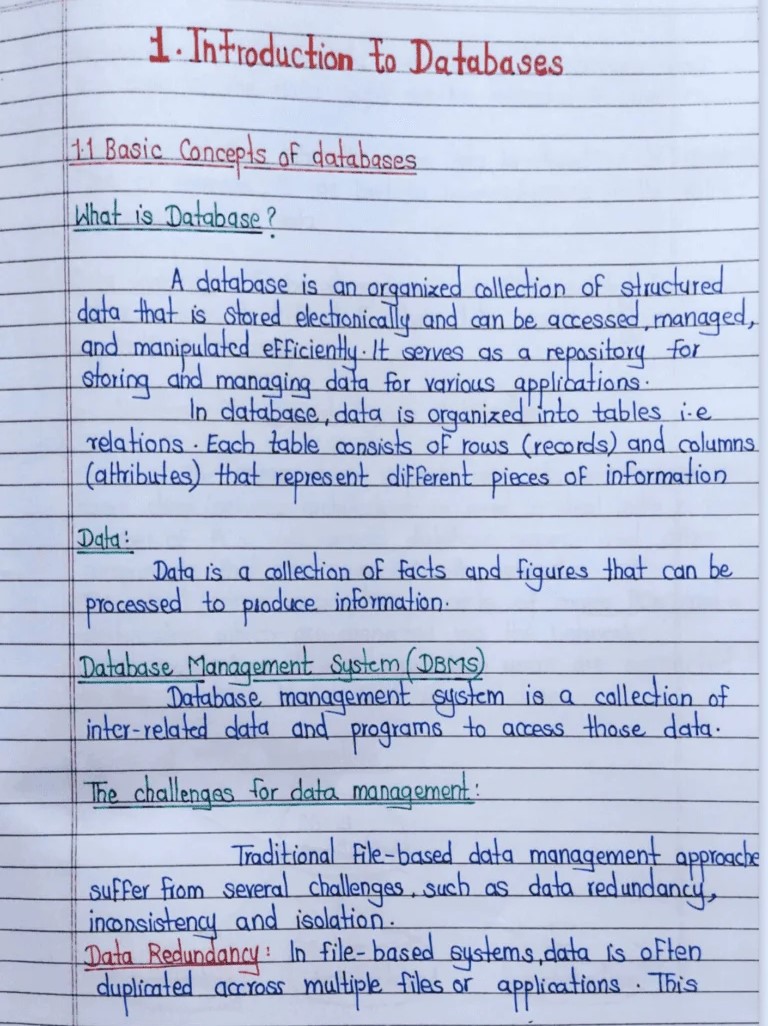 1. Introduction to Databases
1.1 Basic Concepts of databases
What is Database?
A database is an organized collection of structured
data that is stored electronically and can be accessed, managed,
and manipulated efficiently. It serves as a repository for
storing and managing data for various applications.
In database, data is organized into tables i.e
relations. Each table consists of rows (records) and columns
(attributes) that represent different pieces of information
Data:
Data is a collection of facts and figures that can be
processed to produce information.
Database Management System (DBMS)
Database management system is a collection of
inter-related data and programs to access those data.
The challenges for data management:
Traditional file-based data management approache
suffer from several challenges, such as data redundancy,
inconsistency and isolation.
Data Redundancy: In file-based systems, data is often
duplicated accross multiple files or applications. This